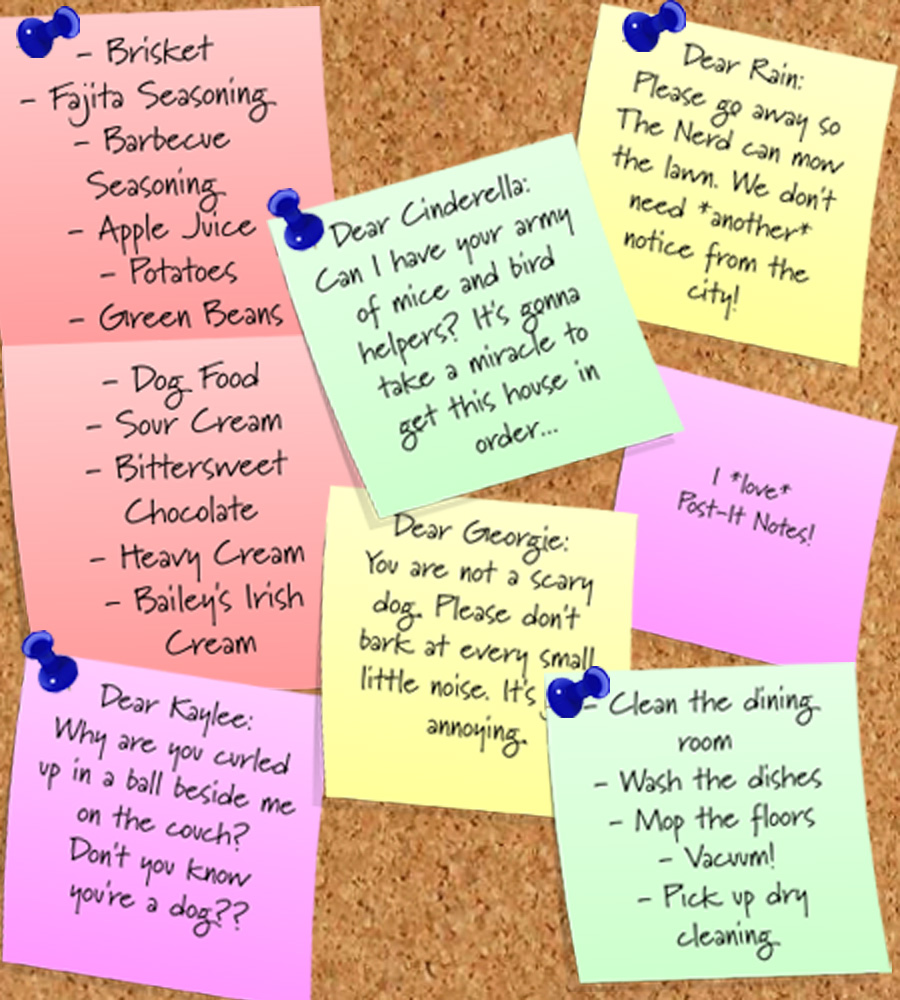 - Brisket
- Fajita Seasoning
- Barbecue
Seasoning
- Apple Juice
- Potatoes
- Green Beans
- Dog Food
- Sour Cream
- Bittersweet
Chocolate
- Heavy Cream
- Bailey's Irish
Cream
Dear Kaylee:
Why are you curled
up in a ball beside me
on the couch?
Don't you know
you're a dog??
Dear Cinderella:
Can I have your army
of mice and bird
helpers? It's gonna
take a miracle to
get this house in
order...
Dear Georgie:
You are not a scary
dog. Please don't
bark at every small
little noise. It's
annoying.
Dear Rain:
Please go away so
The Nerd can mow
the lawn. We don't
need *another*
notice from the
city!
I *love*
Post-It Notes!
- Clean the dining
room
- Wash the dishes
- Mop the floors
- Vacuum!
- Pick up dry
cleaning